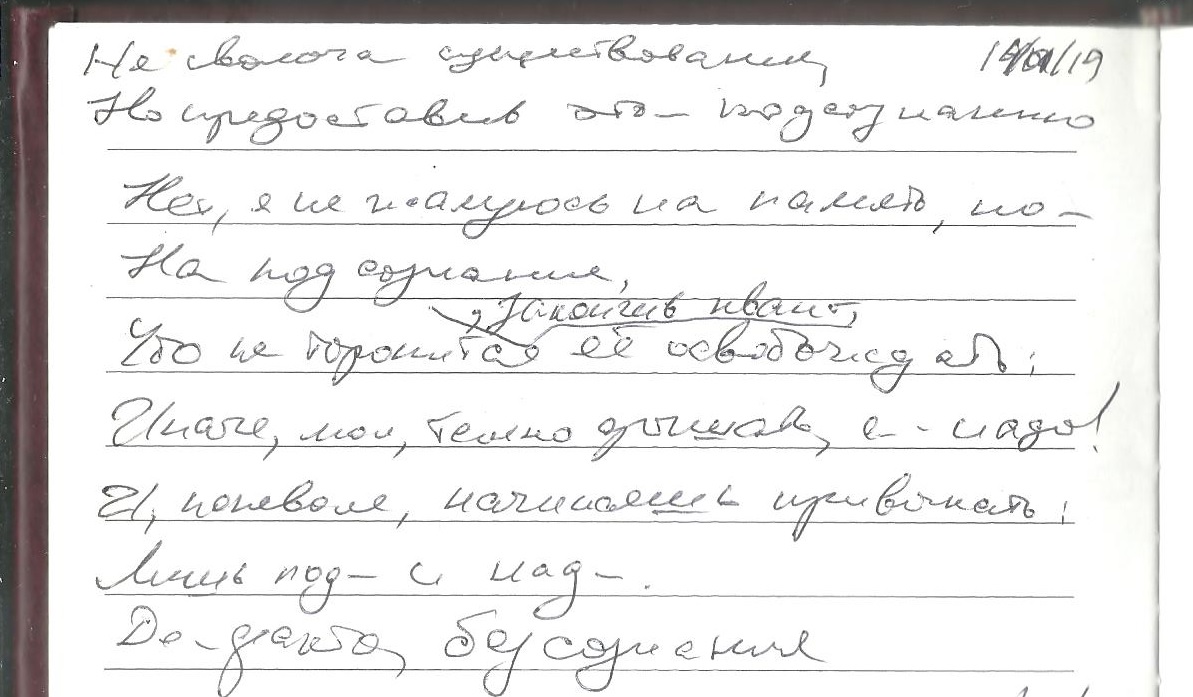 Не сволоча существования, 14/01/19
Но предоставив это – подсознанию
Нет, я не жалуюсь на память, но –
На подсознание,
, закончив квант,
Что не торопится её освобождать:
Иначе, мол, темно душать, а – надо!
И, поневоле, начинаешь привыкать:
Лишь под – и над –.
Де-факто, без сознания